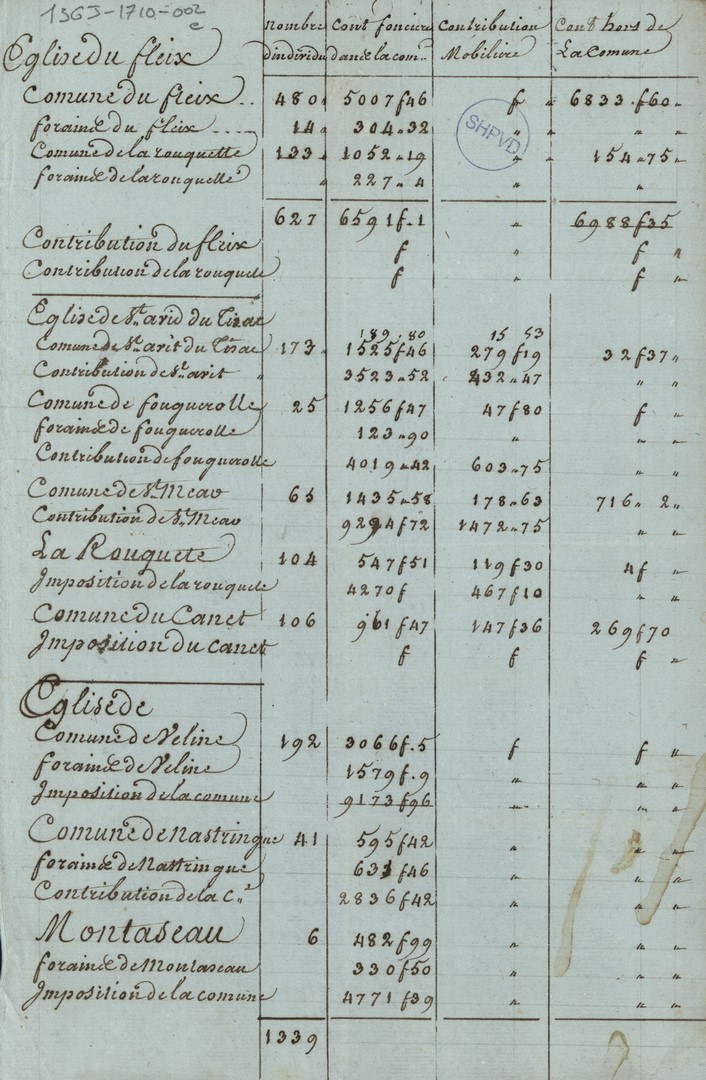 13GJ-1710-002
c
nombre Cont fonciere Contribution Cont hors de
Eglise du fleix dindividu dans la com.. Mobiliere La Comune
Comune du fleix .. 480 5007f46 f " 6833.f60 "
foraine du fleix .... 14 304..32 " " " "
SHPVD
Comune de la rouquette 133 1052..19 " " 154..75 "
foraine de la rouquelle " 227.. 4 " "
627 6591f.1 " 6988f35
Contribution du fleix f " f "
Contribution de la rouquete f " f "
Eglise de St. avid du Tizac
189.80 15 53
Comune de St. avit du Tizac 173 1525f46 279f19 32f37 "
Contribution de St. avit " 3523..52 432..47 " "
Comune de fouguerolle 25 1256f47 47f80 f "
foraine de fouguerolle 123..90 " " "
Contribution de fouguerolle 4019..42 603..75 " "
Comune de St. Meav 65 1435..58 178..63 716.. 2 "
Contribution de St. Meav 9294f72 1472..75 " "
La Rouquete 104 547f51 119f30 4f "
Imposition de la rouquete 4270f 467f10 " "
Comune du Canet 106 961f47 147f36 269f70
Imposition du canet f f f "
Eglise de
Comune de Veline 192 3066f.5 f f "
foraine de Veline 1579f.9 " " "
Imposition de la comune 9173f96 " " "
Comune de Nastringue 41 595f42 " " "
foraine de Nattringue 631f46 " " "
Contribution de la C.e 2836f42 " " "
Montaseau 6 482f99 " " "
foraine de Montaseau 330f50 " " "
Imposition de la comune 4771f39 " " "
1339